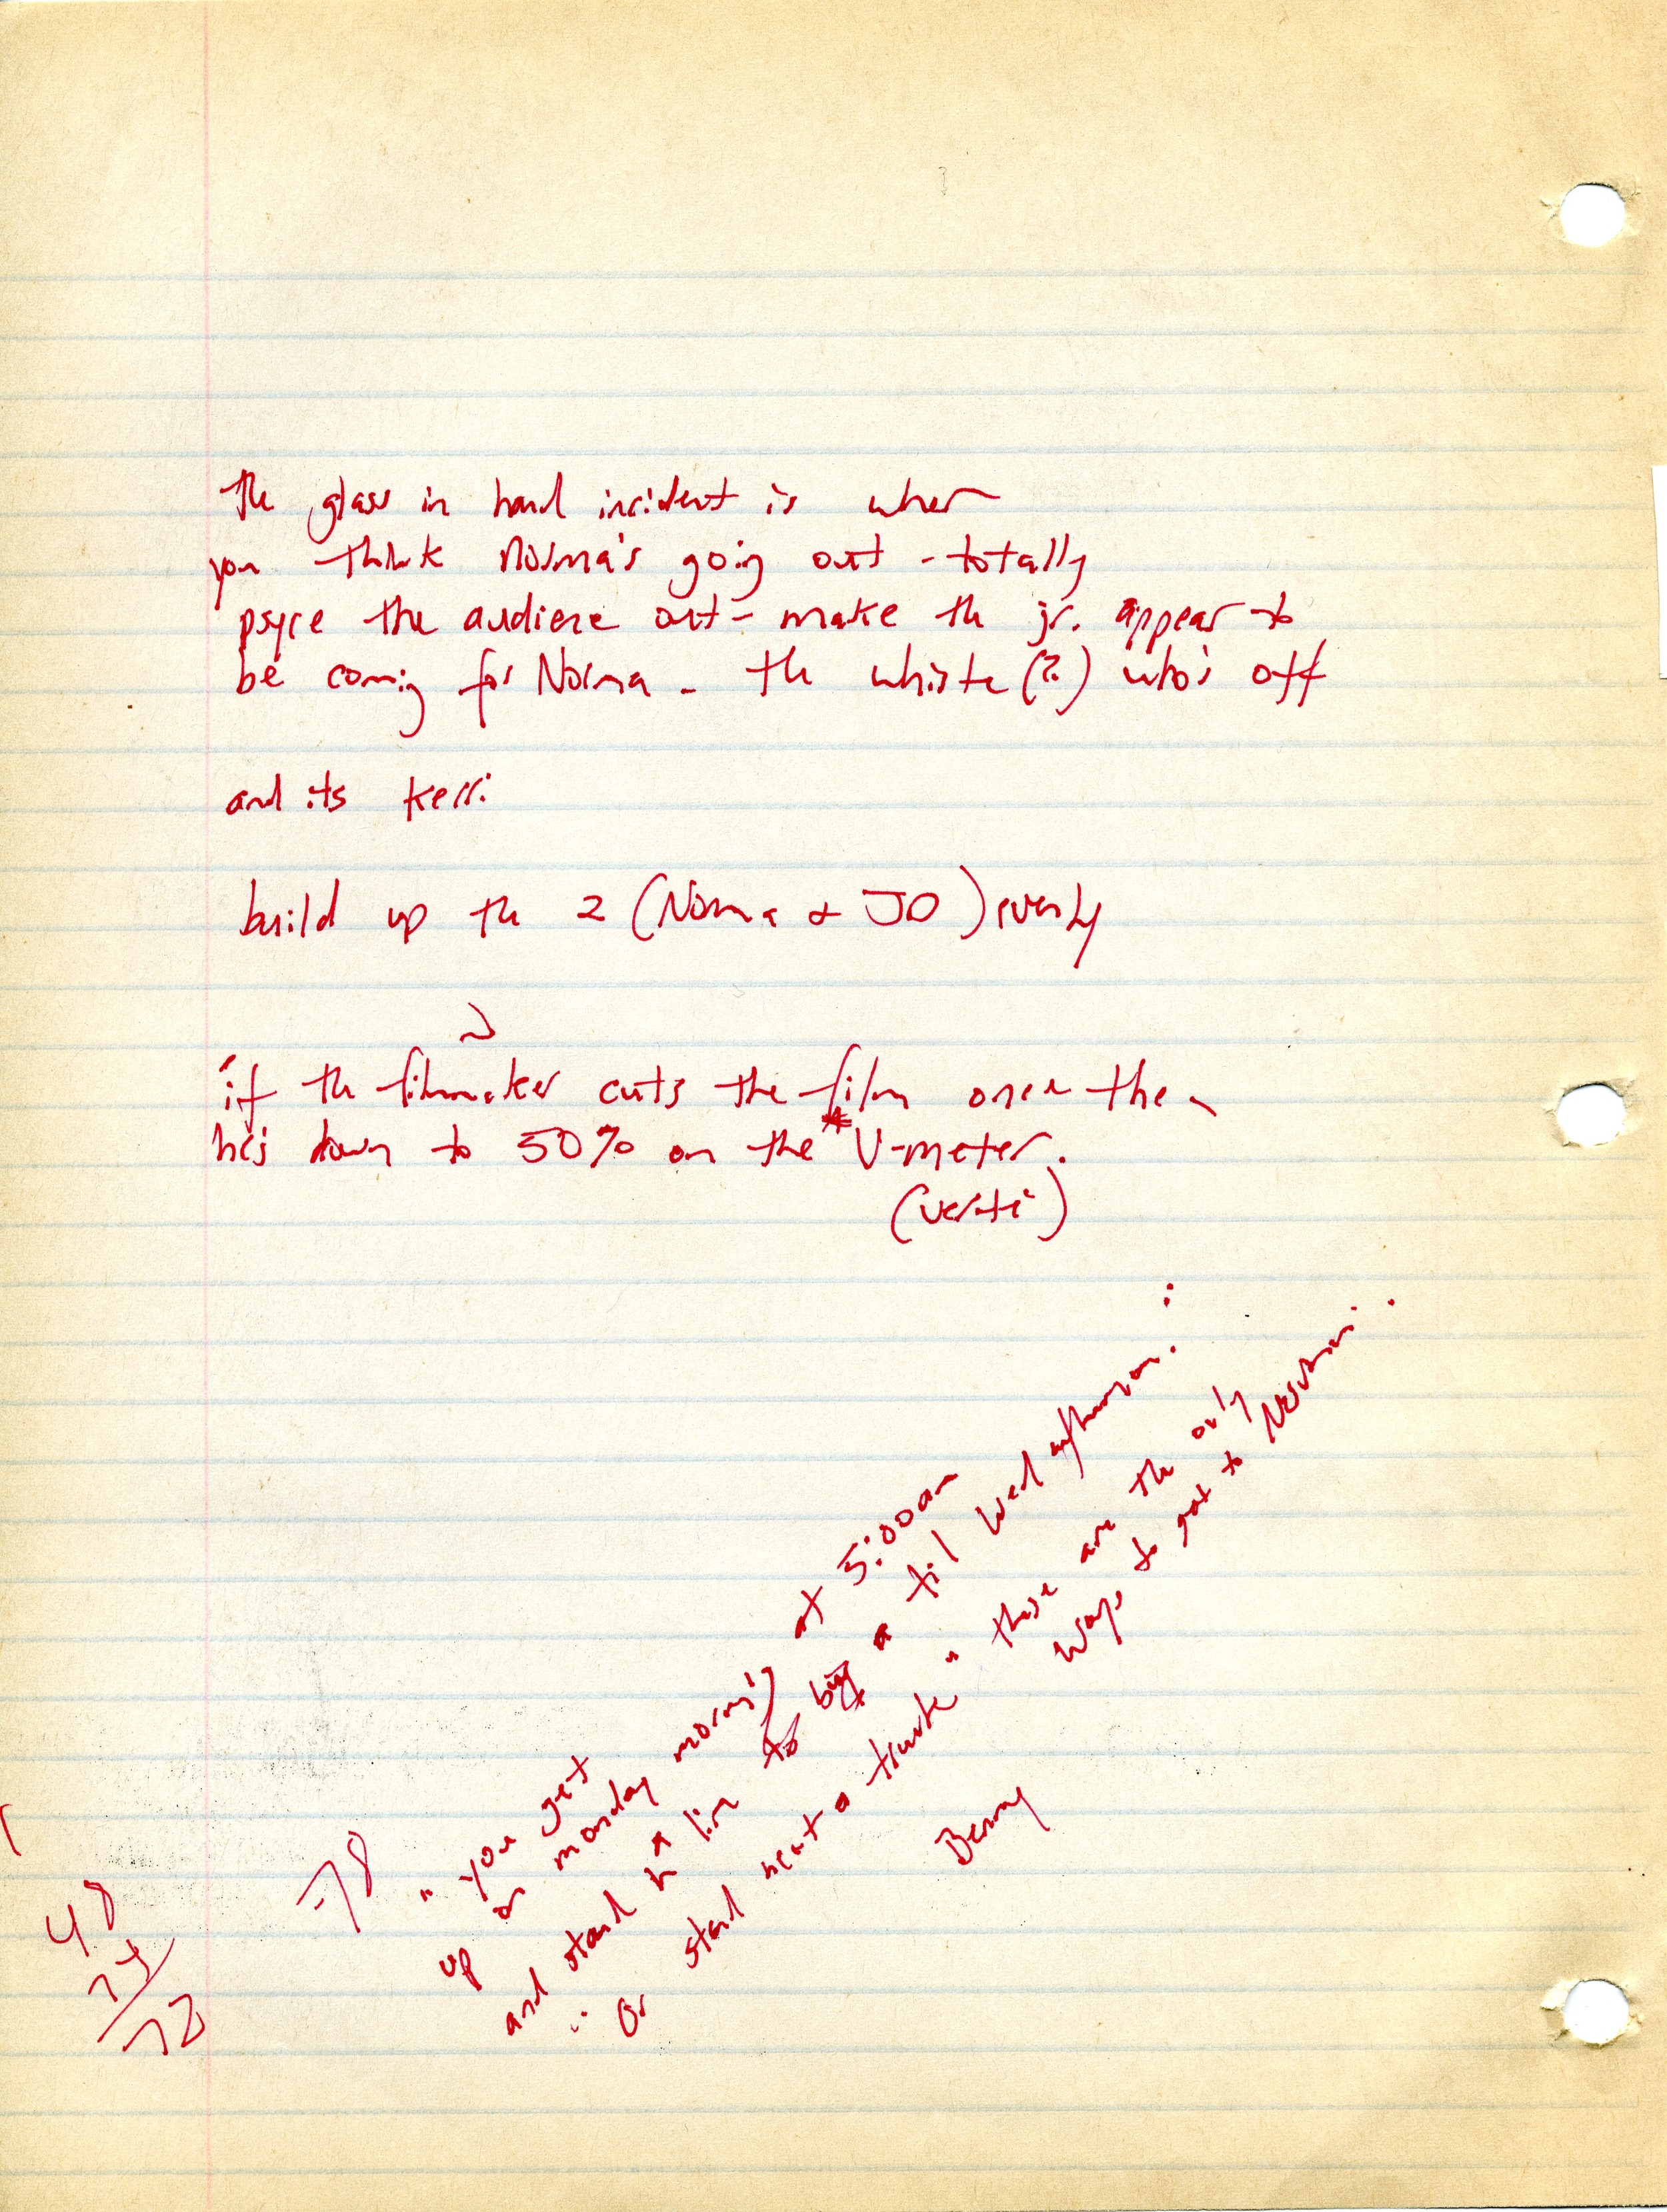 The glass in hand incident is when
you think Norma's going out - totally
psyce the audience out - make the jr. appear to
be coming for Norma - the whiste (?) who's off
and its Kerri
build up the 2 (Norma & JD) evenly
if the filmmaker cuts the film once then
he's down to 50% on the V-meter.
(verité)
"you get
up on monday morning at 5:00am
and stand in a line to buy a til Wed afternoon.
Or stand next a trunk" these are the only
ways to get to
Benny
78
48
24
72